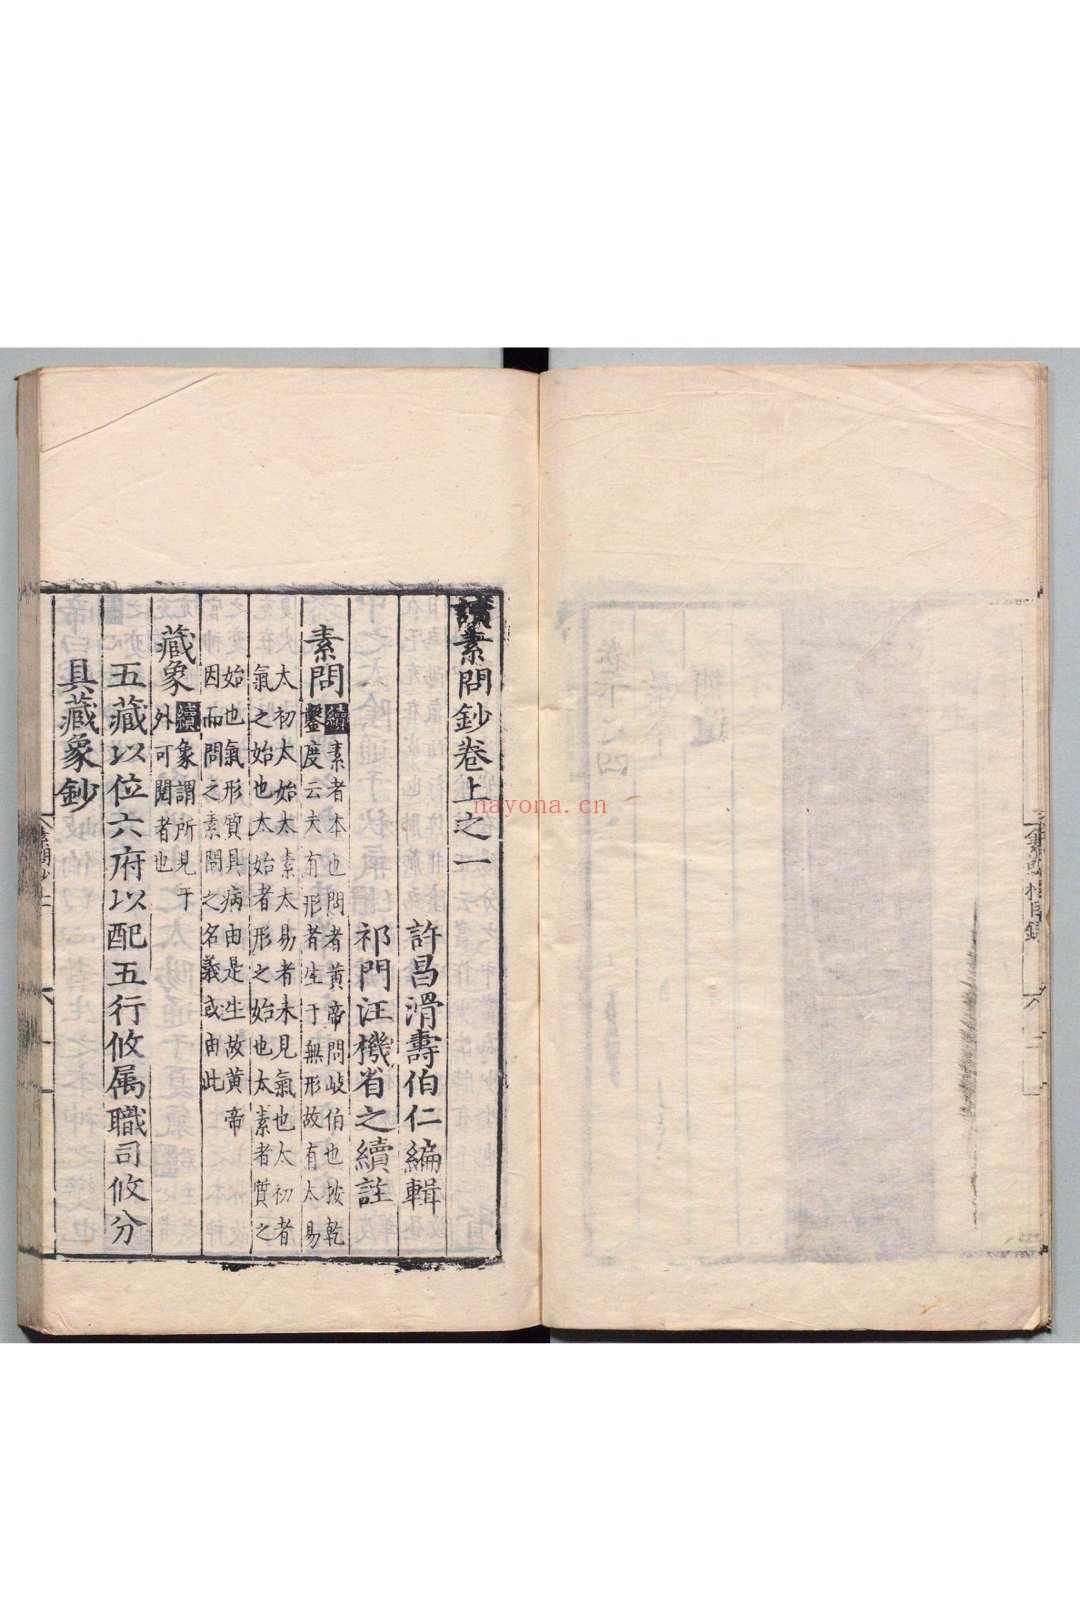 讀素問鈔卷上之一
許昌滑壽伯仁編輯
祁門汪機省之續註
素問
續素者本也問者黃帝問岐伯也按乾
鑿度云夫有形者生于無形故有太易
太初太始太素太易者未見氣也太初者
氣之始也太始者形之始也太素者質之
始也氣形質具病由是生故黃帝
因而問之素問之名義或由此
藏象
續象謂所見于
外可閱者也
五藏以位六府以配五行攸属職司攸分
具藏象鈔
nayona.cn